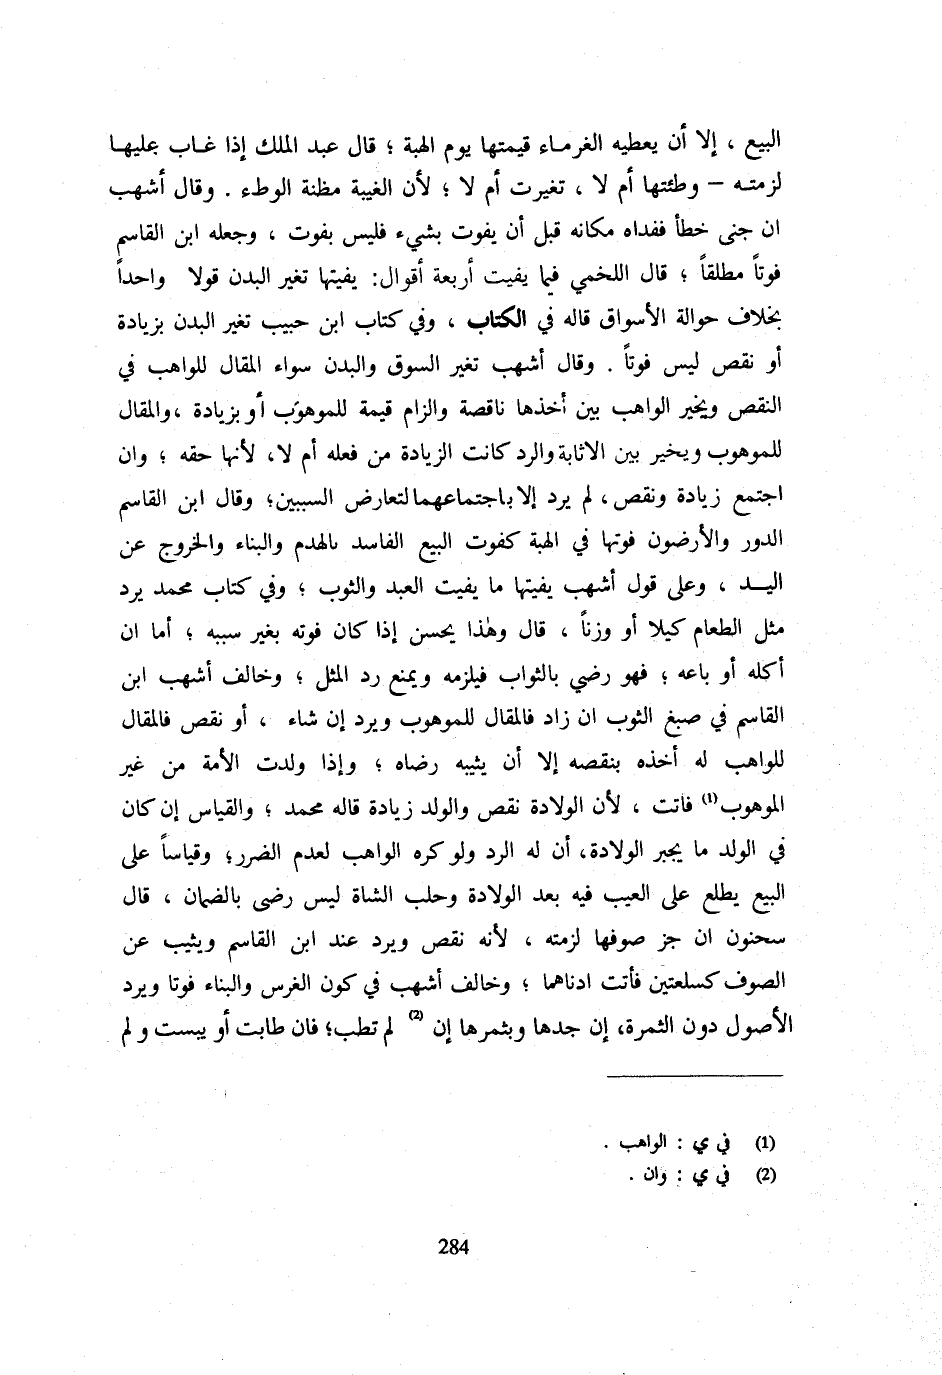 البيع ، إلا أن يعطيه الغرماء قيمتها يوم الهبة ؛ قال عبد الملك إذا غاب عليها
لزمته – وطئتها أم لا ، تغيرت أم لا ؛ لأن الغيبة مظنة الوطء . وقال أشهب
ان جنى خطأ ففداه مكانه قبل أن يفوت بشيء فليس بفوت ، وجعله ابن القاسم
فوتاً مطلقاً ؛ قال اللخمي فيما يفيت أربعة أقوال: يفيتها تغير البدن قولا واحداً
بخلاف حوالة الأسواق قاله في الكتاب ، وفي كتاب ابن حبيب تغير البدن بزيادة
أو نقص ليس فوتاً . وقال أشهب تغير السوق والبدن سواء المقال للواهب في
النقص ويخير الواهب بين أخذها ناقصة والزام قيمة للموهوب أو بزيادة ،والمقال
للموهوب ويخير بين الاثابة والرد كانت الزيادة من فعله أم لا، لأنها حقه ؛ وان
اجتمع زيادة ونقص، لم يرد إلا باجتماعهما لتعارض السببين؛ وقال ابن القاسم
الدور والأرضون فوتها في الهبة كفوت البيع الفاسد بالهدم والبناء والخروج عن
اليد ، وعلى قول أشهب يفيتها ما يفيت العبد والثوب ؛ وفي كتاب محمد يرد
مثل الطعام كيلا أو وزناً ، قال وهذا يحسن إذا كان فوته بغير سببه ؛ أما ان
أكله أو باعه ؛ فهو رضي بالثواب فيلزمه ويمنع رد المثل ؛ وخالف أشهب ابن
القاسم في صبغ الثوب ان زاد فالمقال للموهوب ويرد إن شاء ، أو نقص فالمقال
للواهب له أخذه بنقصه إلا أن يثيبه رضاه ؛ وإذا ولدت الأمة من غير
الموهوب(1) فاتت ، لأن الولادة نقص والولد زيادة قاله محمد ؛ والقياس إن كان
في الولد ما يجبر الولادة، أن له الرد ولو كره الواهب لعدم الضرر؛ وقياساً على
البيع يطلع على العيب فيه بعد الولادة وحلب الشاة ليس رضى بالضمان ، قال
سحنون ان جز صوفها لزمته ، لأنه نقص ويرد عند ابن القاسم ويثيب عن
الصوف كسلعتين فأتت ادناهما ؛ وخالف أشهب في كون الغرس والبناء فوتا ويرد
الأصول دون الثمرة، إن جدها وبثمرها إن (2) لم تطب؛ فان طابت أو يبست و لم
(1) في ي : الواهب .
(2) في ي : وان .
284